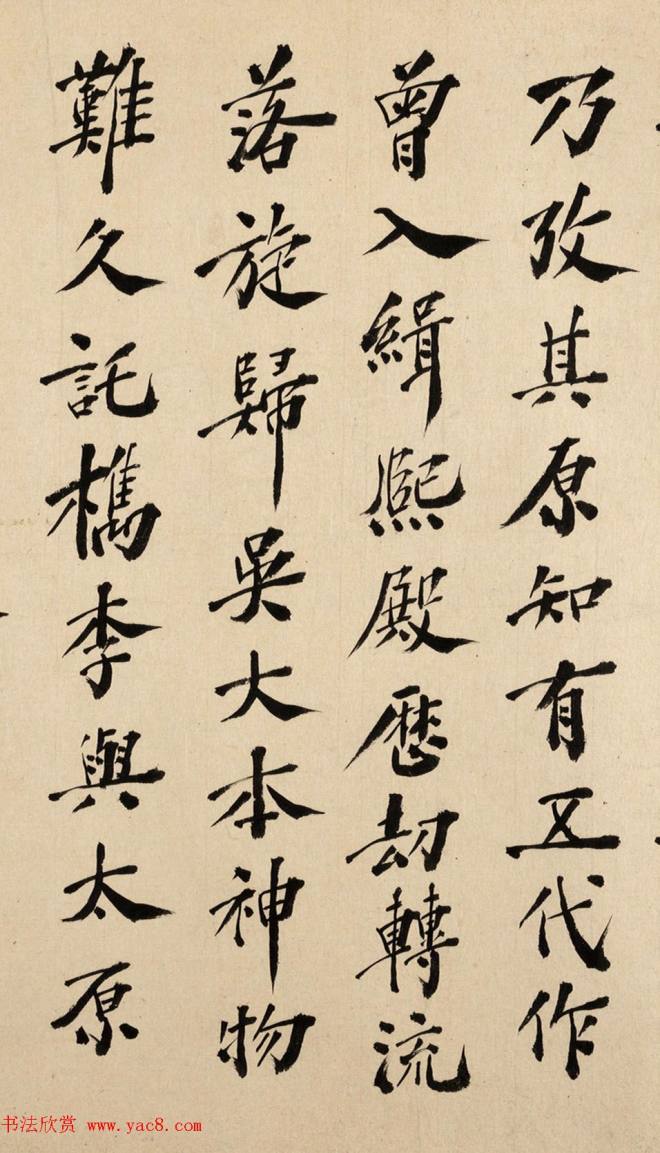 乃攷其原知有五代作
曾入緝熙殿歷劫轉流
落旋歸吳大本神物
難久託檇李與太原
书法欣赏 www.yac8.com